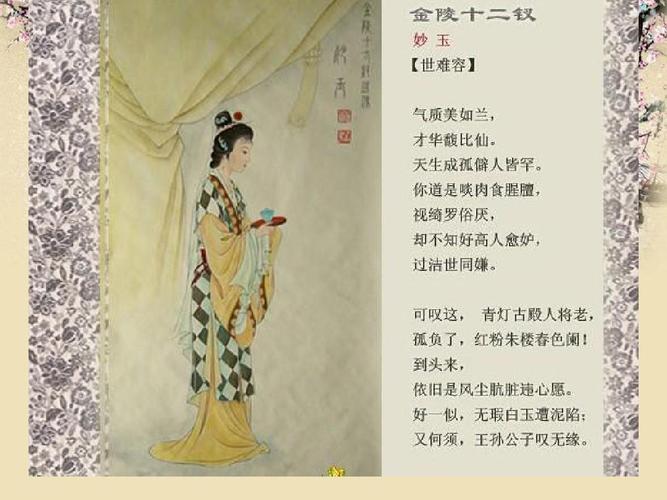 金陵十二钗
妙玉
【世难容】
气质美如兰，
才华馥比仙。
天生成孤僻人皆罕。
你道是啖肉食腥膻，
视绮罗俗厌，
却不知好高人愈妒，
过洁世同嫌。
可叹这， 青灯古殿人将老，
孤负了，红粉朱楼春色阑！
到头来，
依旧是风尘肮脏违心愿。
好一似，无瑕白玉遭泥陷；
又何须，王孙公子叹无缘。
金陵十二钗
妙玉